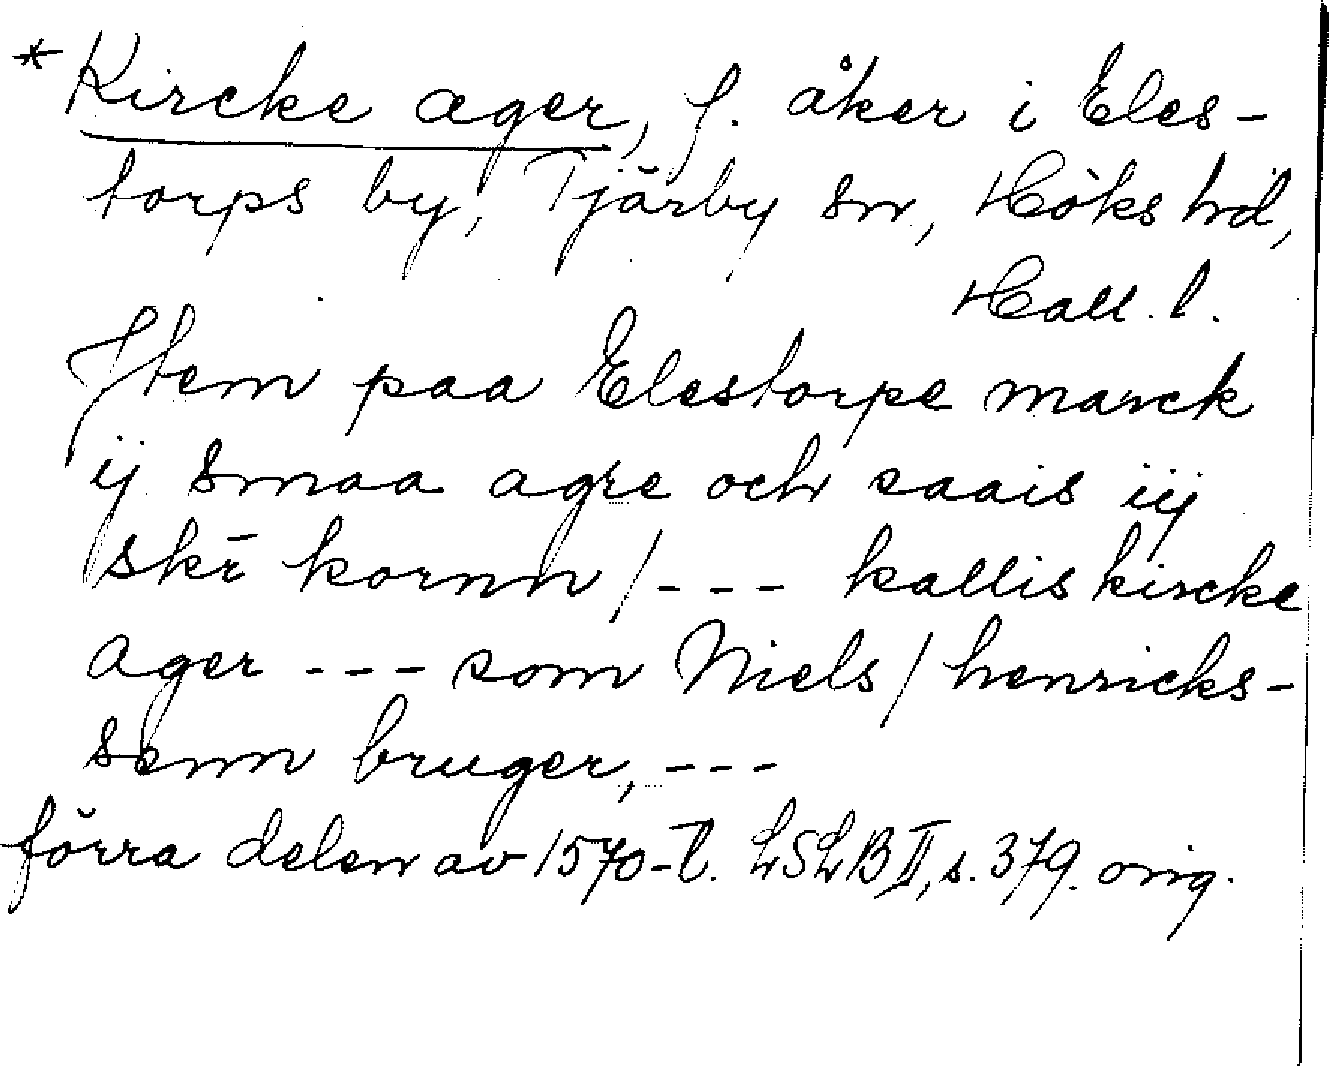 * Kircke ager, f. åker i Eles-
torps by, Tjärby sn, Höks hd,
Hall. l.
Jtem paa Elestorpe marck
ij smaa agre och saais iij
skr̄ kornn / --- kallis kircke
ager --- som Niels / henricks-
senn bruger, ---
förra delen av 1570-t. LSLB II, s. 379. orig.